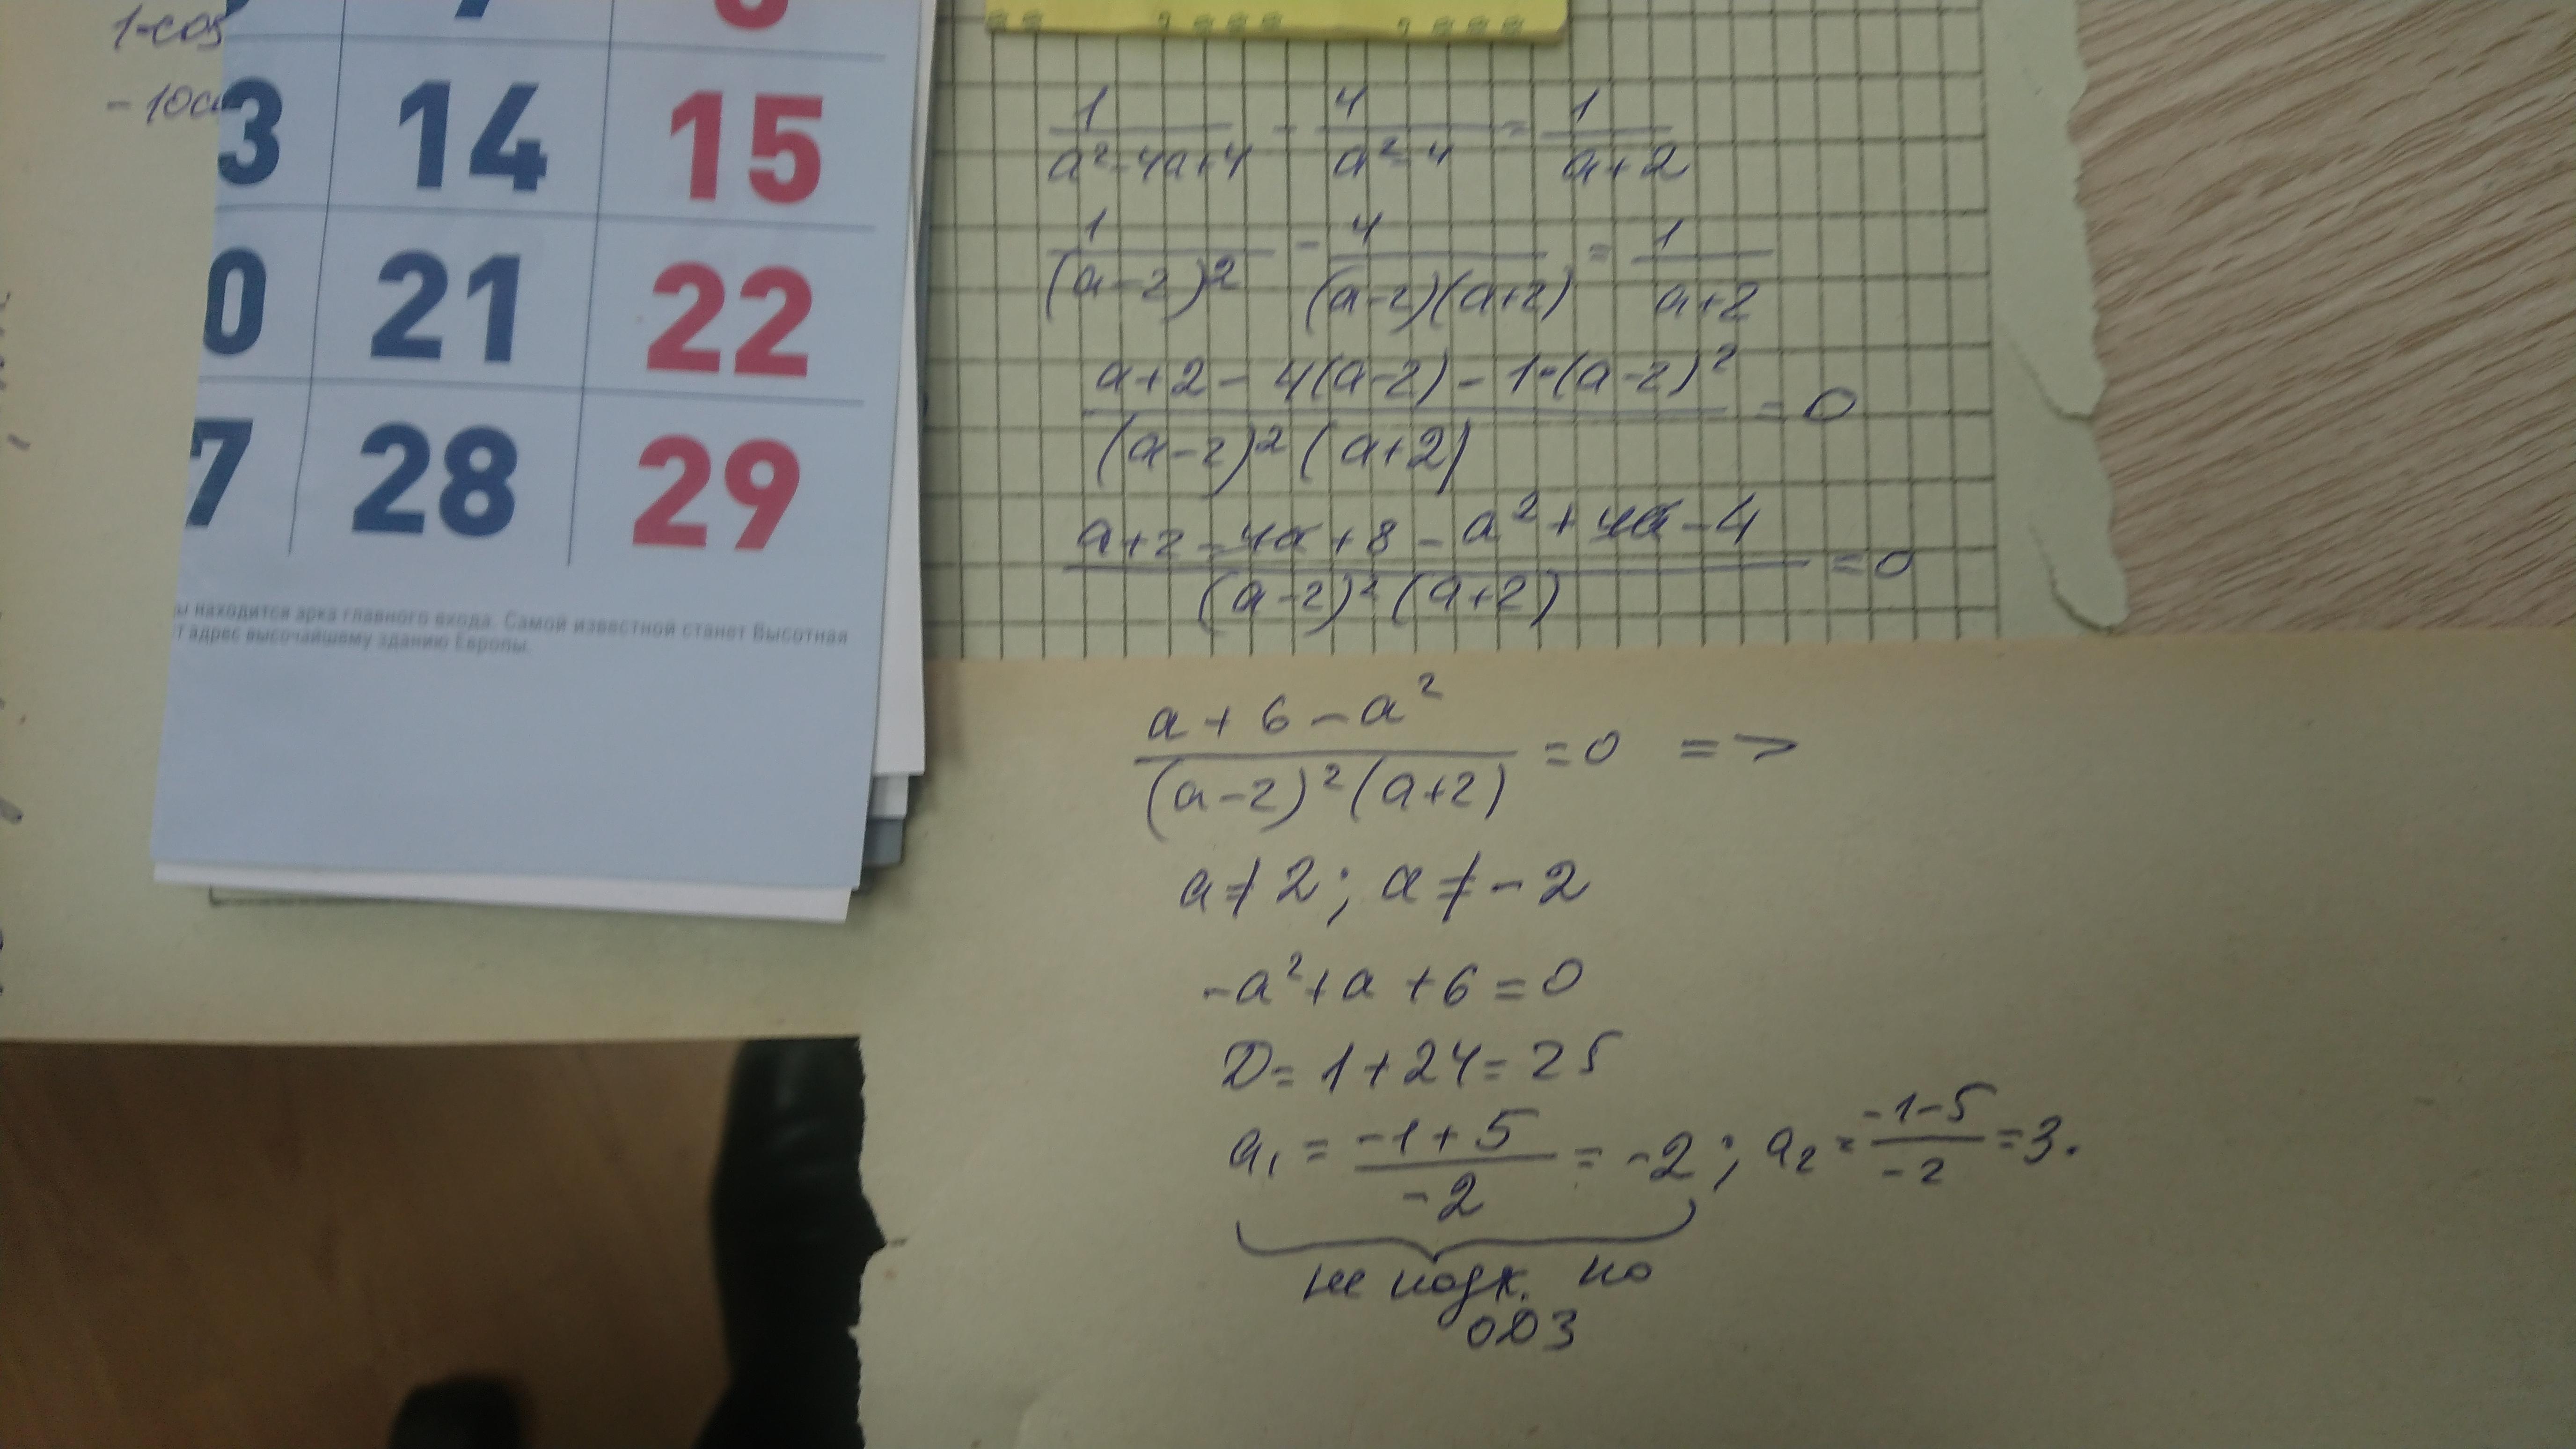 1-cos
- 10a
7
3 14 15
0 21 22
7 28 29
ы находится арка главного входа. Самой известной станет Высотная
т адрес высочайшему зданию Европы.
1/(a²-4a+4) - 4/(a²-4) = 1/(a+2)
1/(a-2)² - 4/((a-2)(a+2)) = 1/(a+2)
(a+2-4(a-2)-1·(a-2)²)/((a-2)²(a+2)) = 0
(a+2-4a+8-a²+4a-4)/((a-2)²(a+2)) = 0
(a+6-a²)/((a-2)²(a+2)) = 0 =>
a≠2; a≠-2
-a²+a+6=0
D=1+24=25
a₁ = (-1+5)/(-2) = -2; a₂ = (-1-5)/(-2) = 3.
не подх. по
ОДЗ